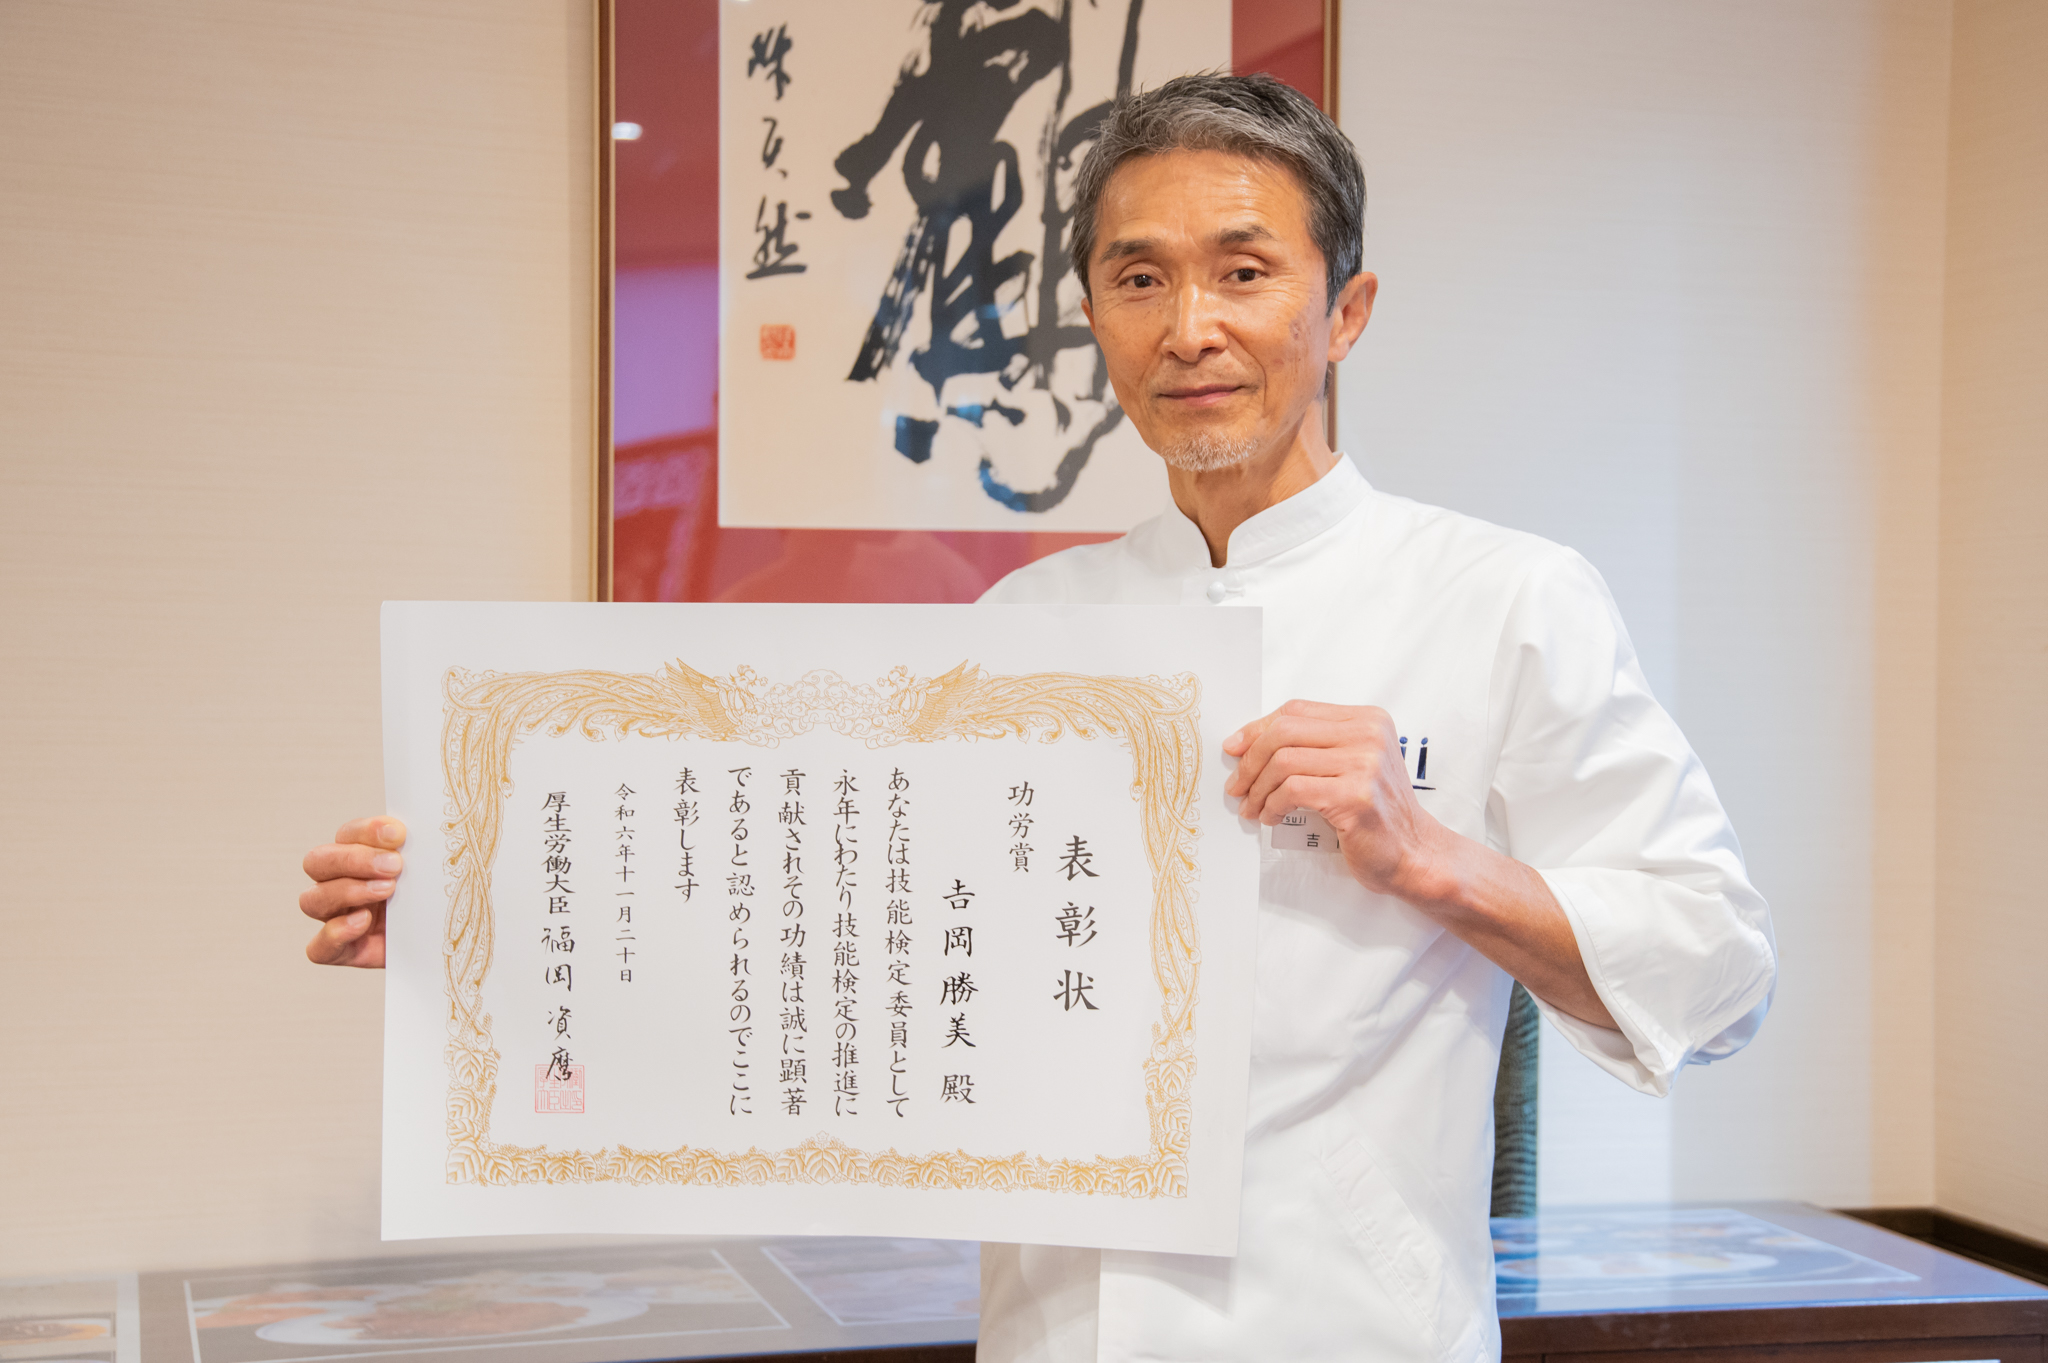 表彰状
功労賞
𠮷岡勝美 殿
あなたは技能検定委員として
永年にわたり技能検定の推進に
貢献されその功績は誠に顕著
であると認められるのでここに
表彰します
令和六年十一月二十日
厚生労働大臣 福岡資麿
suji
吉